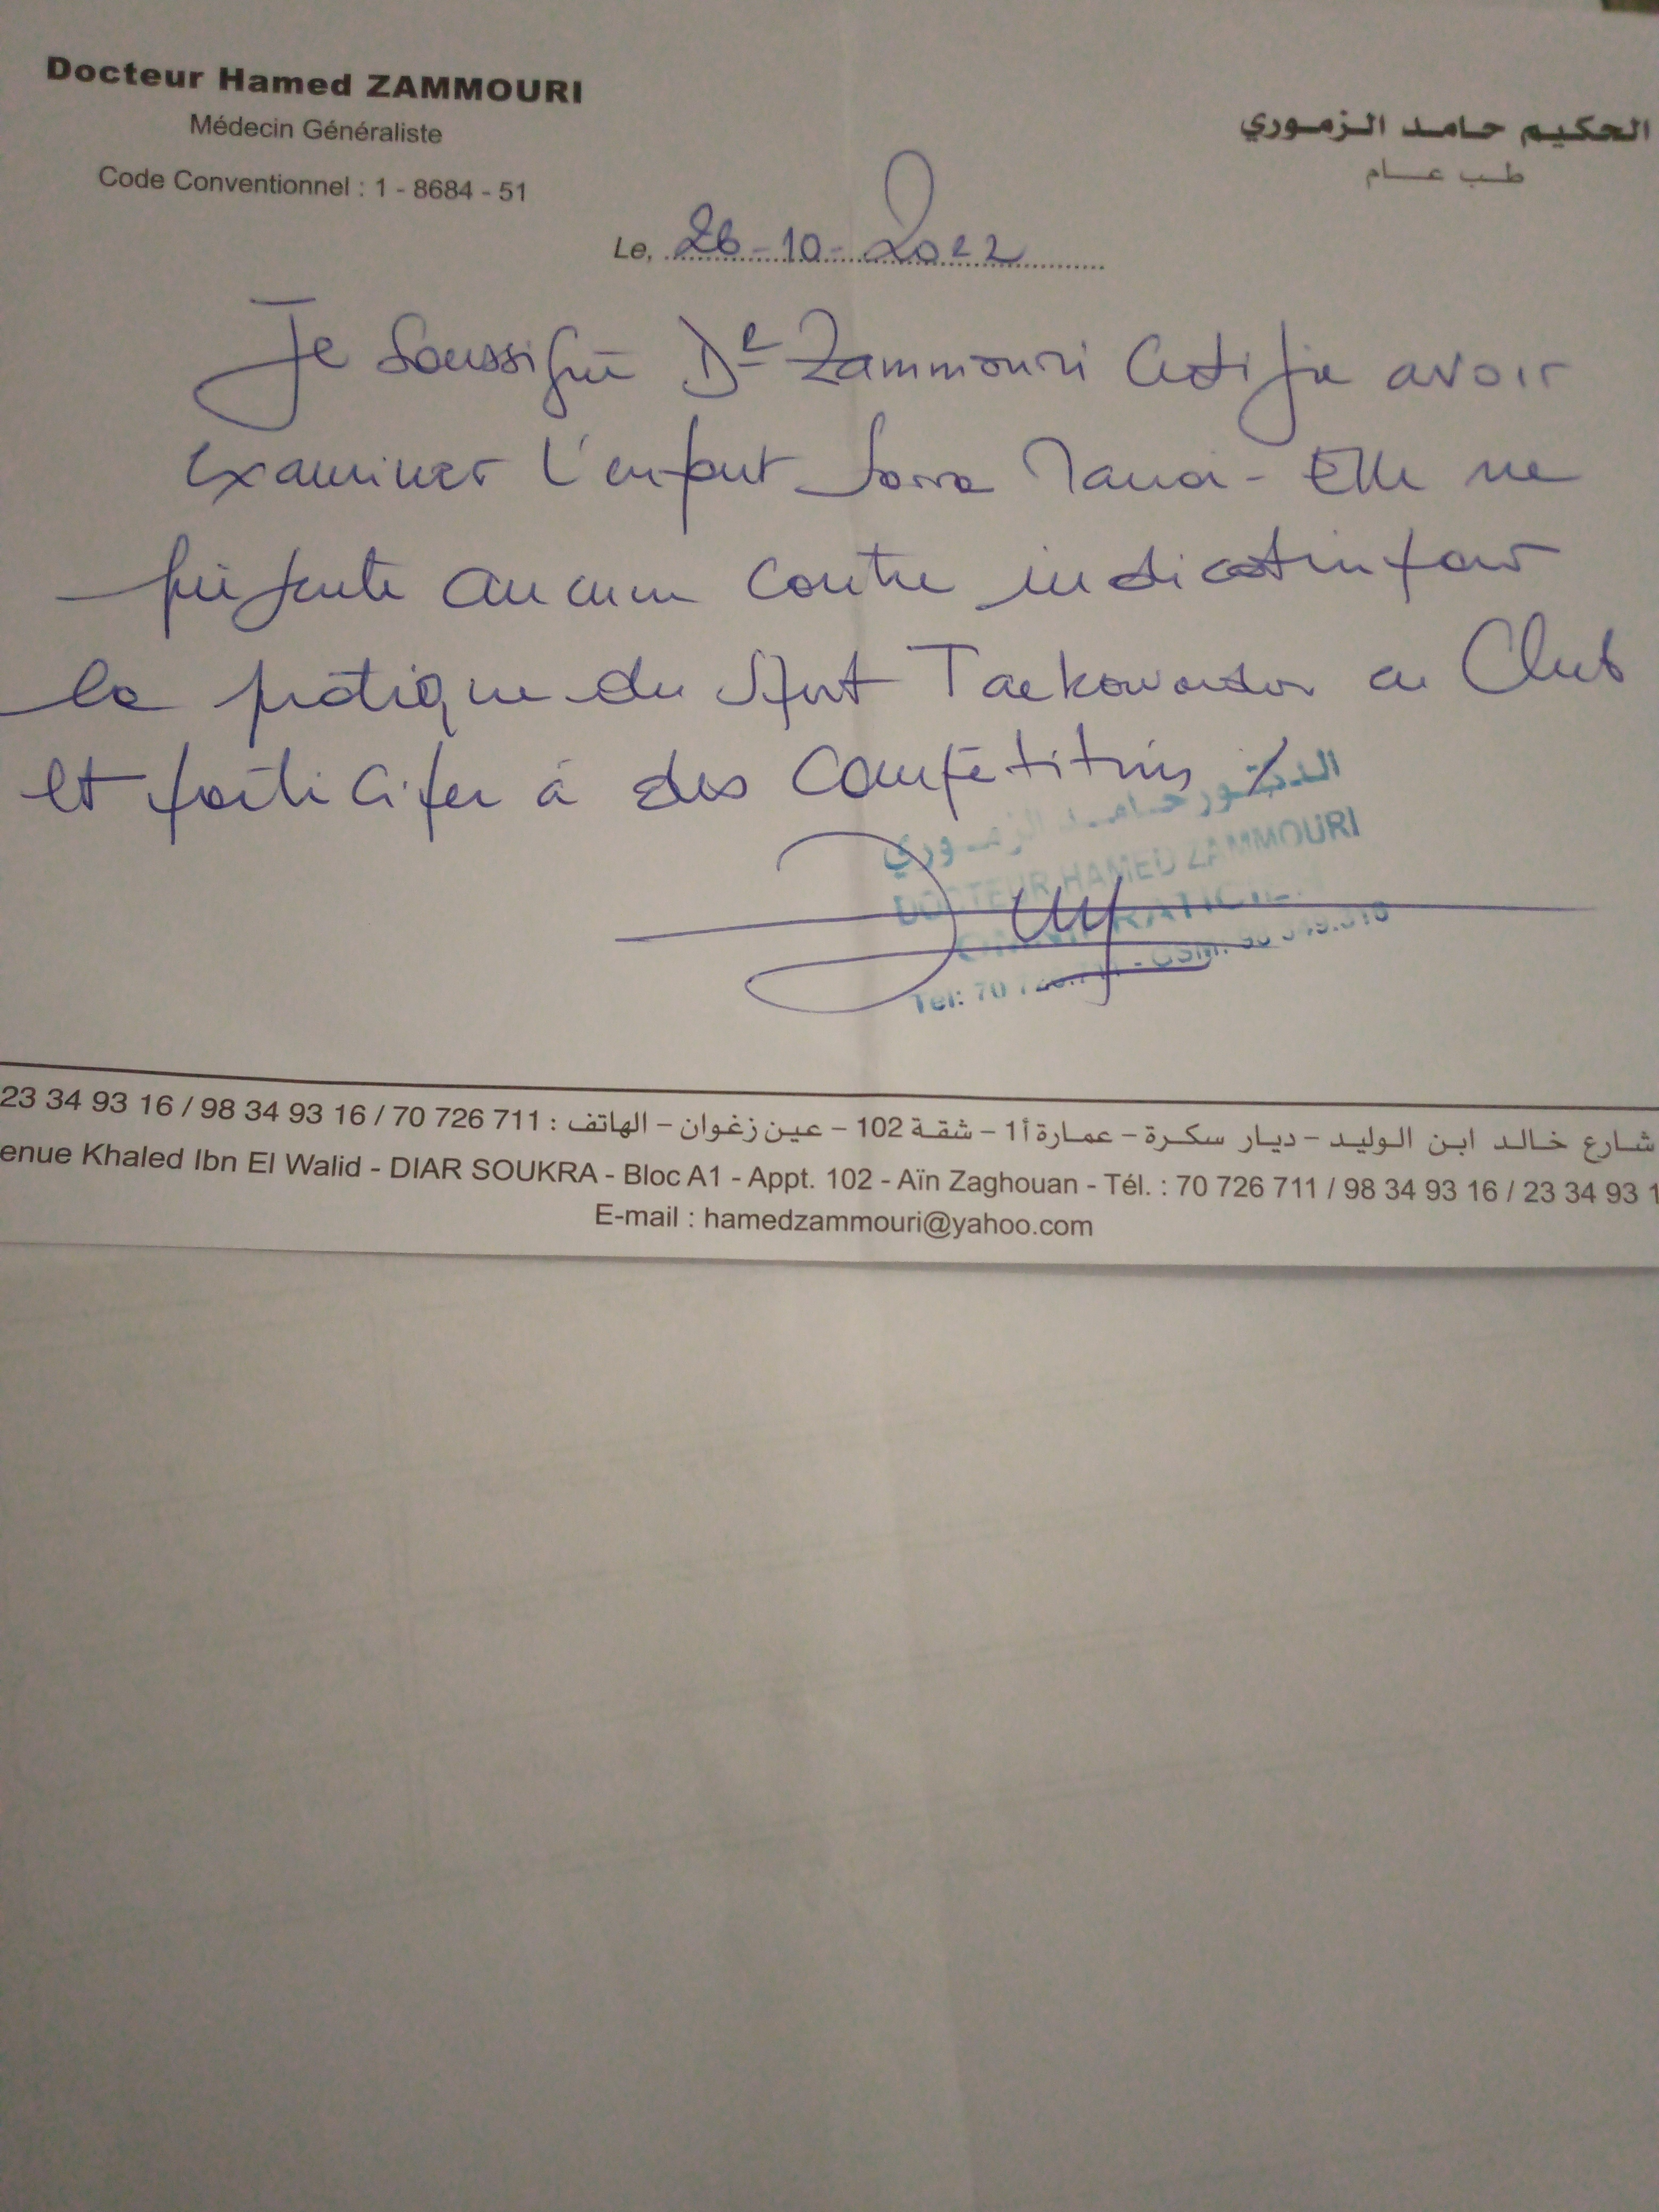 Docteur Hamed ZAMMOURI
Médecin Généraliste
Code Conventionnel : 1 - 8684 - 51
الحكيم حامد الزموري
طب عام
Le, 26-10-2022
Je soussigné Dr Zammouri certifie avoir
examiner l'enfant Sarra - Elle ne
présente aucune contre indication pour
la pratique du sport Taekowondo en Club
et participer à des compétitions
الدكتور حامد الزموري
DOCTEUR HAMED ZAMMOURI
Tel: 70 - GSM:
شارع خالد ابن الوليد – ديار سكرة – عمارة أ1 – شقة 102 – عين زغوان – الهاتف : 711 726 70 / 16 93 34 98 / 16 93 34 23
enue Khaled Ibn El Walid - DIAR SOUKRA - Bloc A1 - Appt. 102 - Aïn Zaghouan - Tél. : 70 726 711 / 98 34 93 16 / 23 34 93 1
E-mail : hamedzammouri@yahoo.com